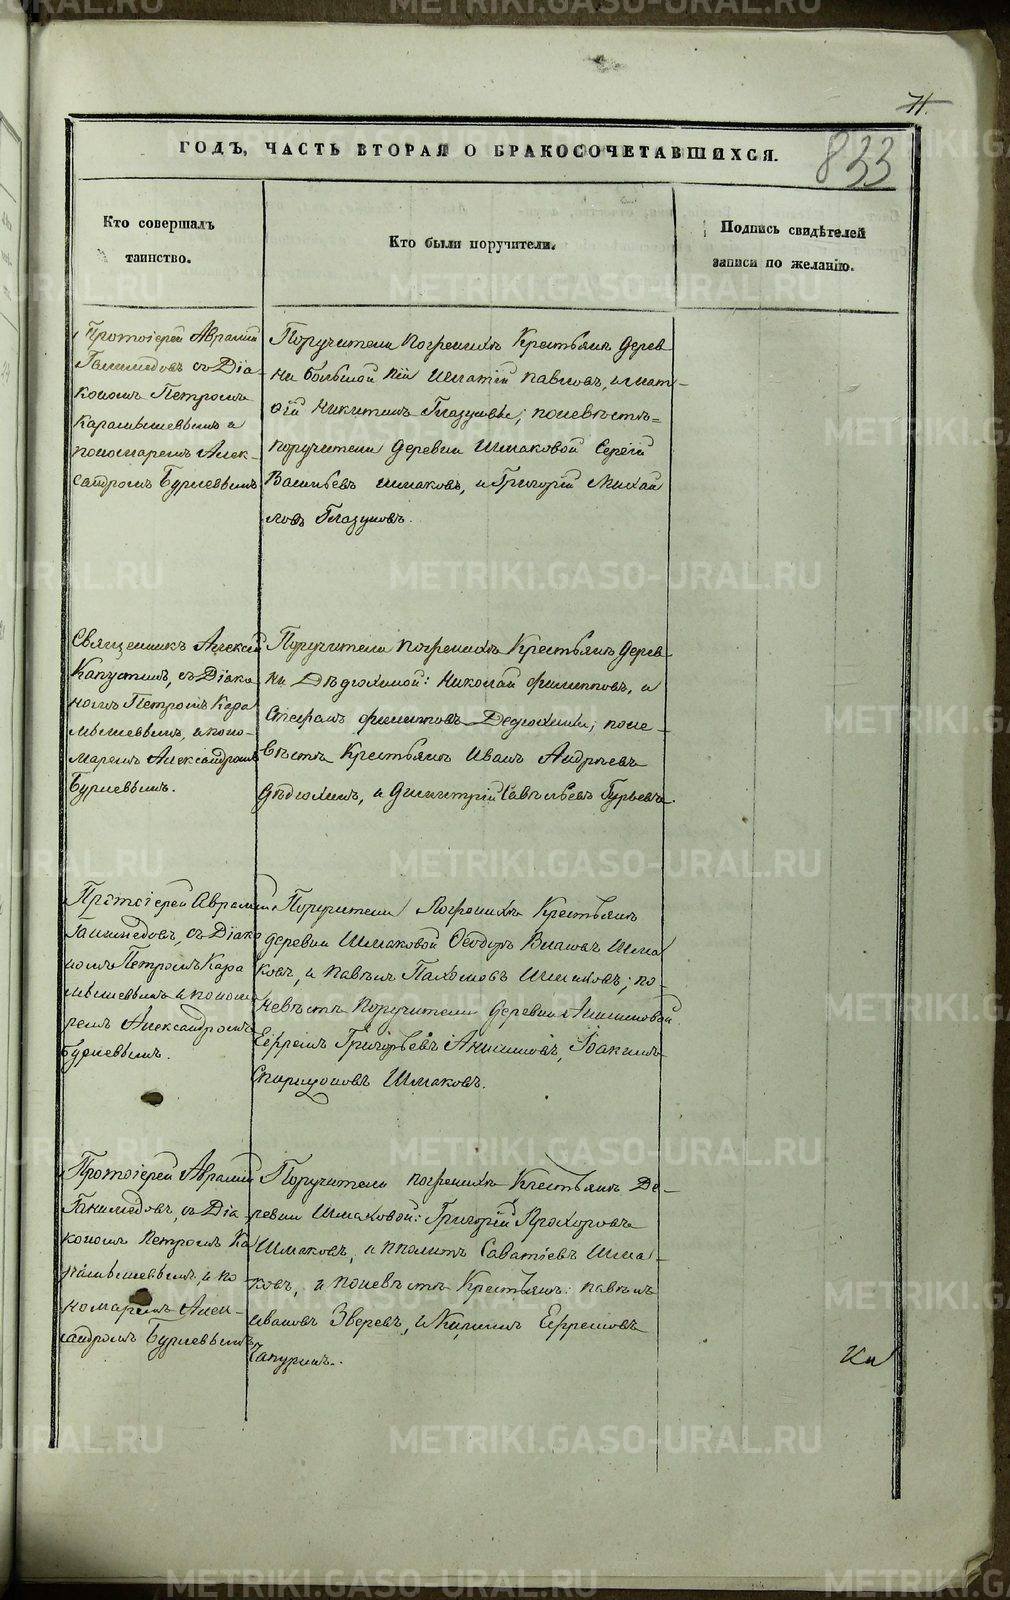 ГОДЪ, ЧАСТЬ ВТОРАЯ О БРАКОСОЧЕТАВШИХСЯ.
833
Кто совершалъ
таинство.
Кто были поручители.
Подпись свидѣтелей
записи по желанію.
Протоіерей Аврамій
съ Діа-
кономъ Петромъ
Карамышевымъ и
пономаремъ Алек-
сандромъ Бурневымъ
Поручители по женихѣ Крестьянъ дерев
ни большой
Никитинъ Глазуновы; по невѣстѣ
поручители деревни Шмаковой Сергій
Васильевъ Шмаковъ, и Григорій Михай
ловъ Глазуновъ.
Священникъ Алексѣй
Капустинъ, съ Діако
номъ Петромъ Кара
мышевымъ, и поно-
маремъ Александромъ
Бурневымъ.
Поручители по женихѣ Крестьянъ дерев
ни Дѣдюхиной: Николай Филипповъ, и
Стефанъ Филипповъ Дедюхины; по не-
вѣстѣ Крестьянъ Иванъ Андреевъ
Дѣдюхинъ, и Димитрій Савельевъ Гурьевъ.
Протоіерей Аврамій
съ Діако
номъ Петромъ Кара
мышевымъ и понома
ремъ Александромъ
Бурневымъ.
Поручители по женихѣ Крестьянъ
деревни Шмаковой Ѳеодоръ Шма
ковъ, и Павелъ Пахомовъ Шмаковъ; по
невѣстѣ Поручители деревни
Ефремъ Григорьевъ Анисимовъ, Іоакимъ
Спиридоновъ Шмаковъ.
Протоіерей Аврамій
съ Діа-
кономъ Петромъ Ка
рамышевымъ, и по
номаремъ Алек-
сандромъ Бурневымъ
Поручители по женихѣ Крестьянъ Де-
ревни Шмаковой: Григорій Прохоровъ
Шмаковъ, и Иполитъ Саватіевъ Шма-
ковъ, и по невѣстѣ Крестьянъ: Павелъ
Ивановъ Зверевъ, и Ефремовъ
Чапуринъ.